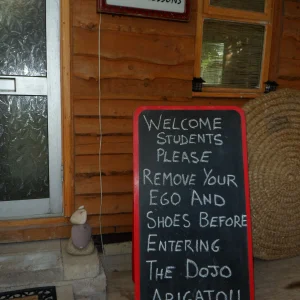 WELCOME
STUDENTS
PLEASE
REMOVE YOUR
EGO AND
SHOES BEFORE
ENTERING
THE DOJO
ARIGATOU